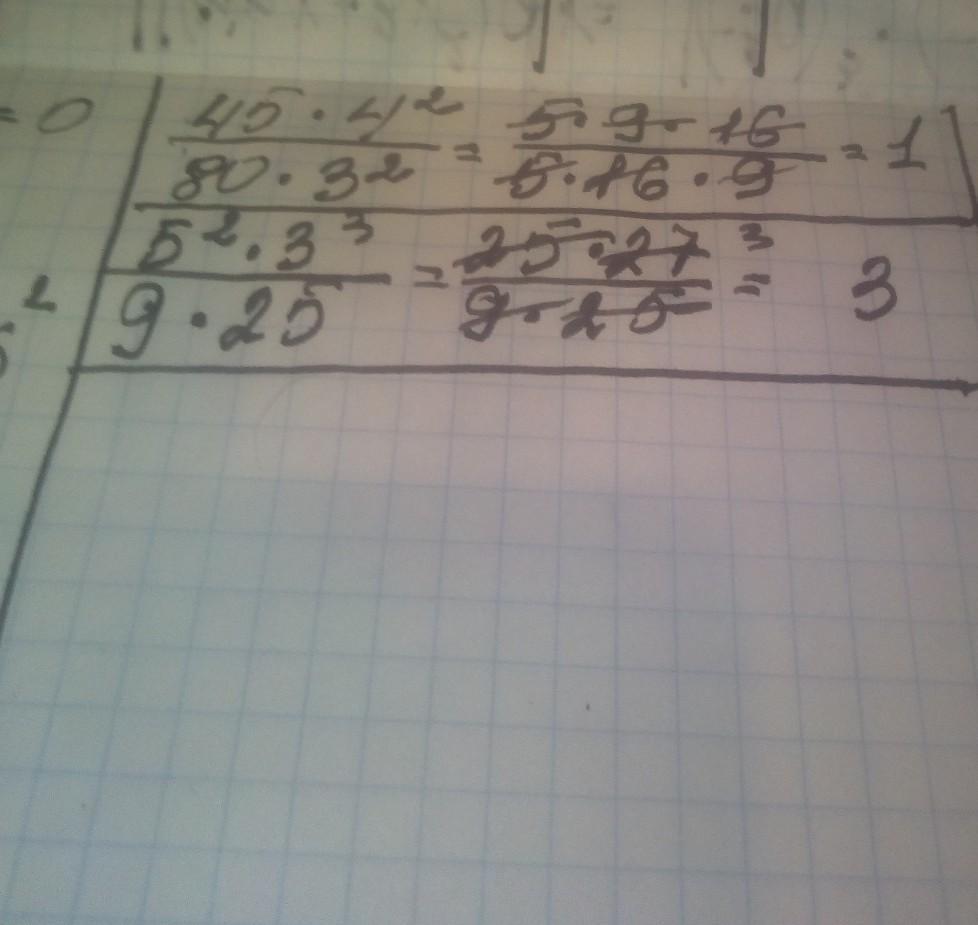 = 0
45 · 4² / 80 · 3² = 5 · 9 · 16 / 5 · 16 · 9 = 1
5² · 3³ / 9 · 25 = 25 · 27 ³ / 9 · 25 = 3